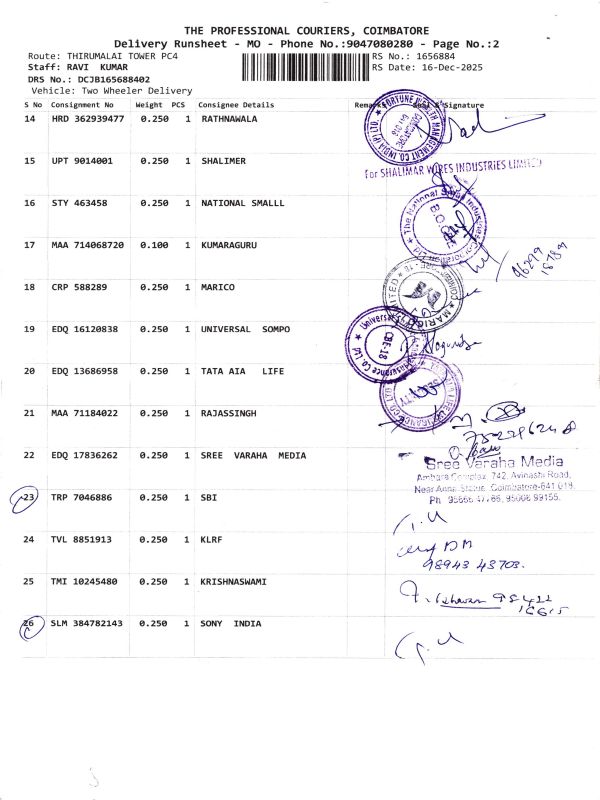 THE PROFESSIONAL COURIERS, COIMBATORE
Delivery Runsheet - MO - Phone No.:9047080280 - Page No.:2
Route: THIRUMALAI TOWER PC4 RS No.: 1656884
Staff: RAVI KUMAR RS Date: 16-Dec-2025
DRS No.: DCJB165688402
Vehicle: Two Wheeler Delivery
S No Consignment No Weight PCS Consignee Details Remarks Seal & Signature
14 HRD 362939477 0.250 1 RATHNAWALA
15 UPT 9014001 0.250 1 SHALIMER
For SHALIMAR WIRES INDUSTRIES LIMITED
16 STY 463458 0.250 1 NATIONAL SMALLL
17 MAA 714068720 0.100 1 KUMARAGURU
96299
18789
18 CRP 588289 0.250 1 MARICO
19 EDQ 16120838 0.250 1 UNIVERSAL SOMPO
20 EDQ 13686958 0.250 1 TATA AIA LIFE
21 MAA 71184022 0.250 1 RAJASSINGH
22 EDQ 17836262 0.250 1 SREE VARAHA MEDIA
Sree Varaha Media
Ambara Complex, 742, Avinashi Road,
Near Anna Statue, Coimbatore-641 018.
23 TRP 7046886 0.250 1 SBI
24 TVL 8851913 0.250 1 KLRF
98943 43703.
25 TMI 10245480 0.250 1 KRISHNASWAMI
26 SLM 384782143 0.250 1 SONY INDIA